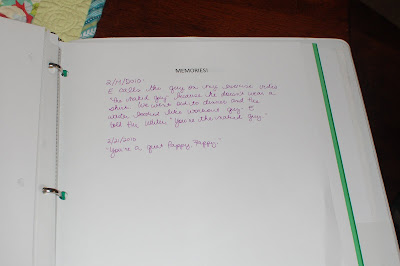 MEMORIES!
2/14/2010 -
E calls the guy on my exercise video
"the naked guy" because he doesn't wear a
shirt. We went out to dinner and the
waiter looked like workout guy. E
told the waiter "You're the naked guy."
2/21/2010
"You're a great Pappy, Pappy."